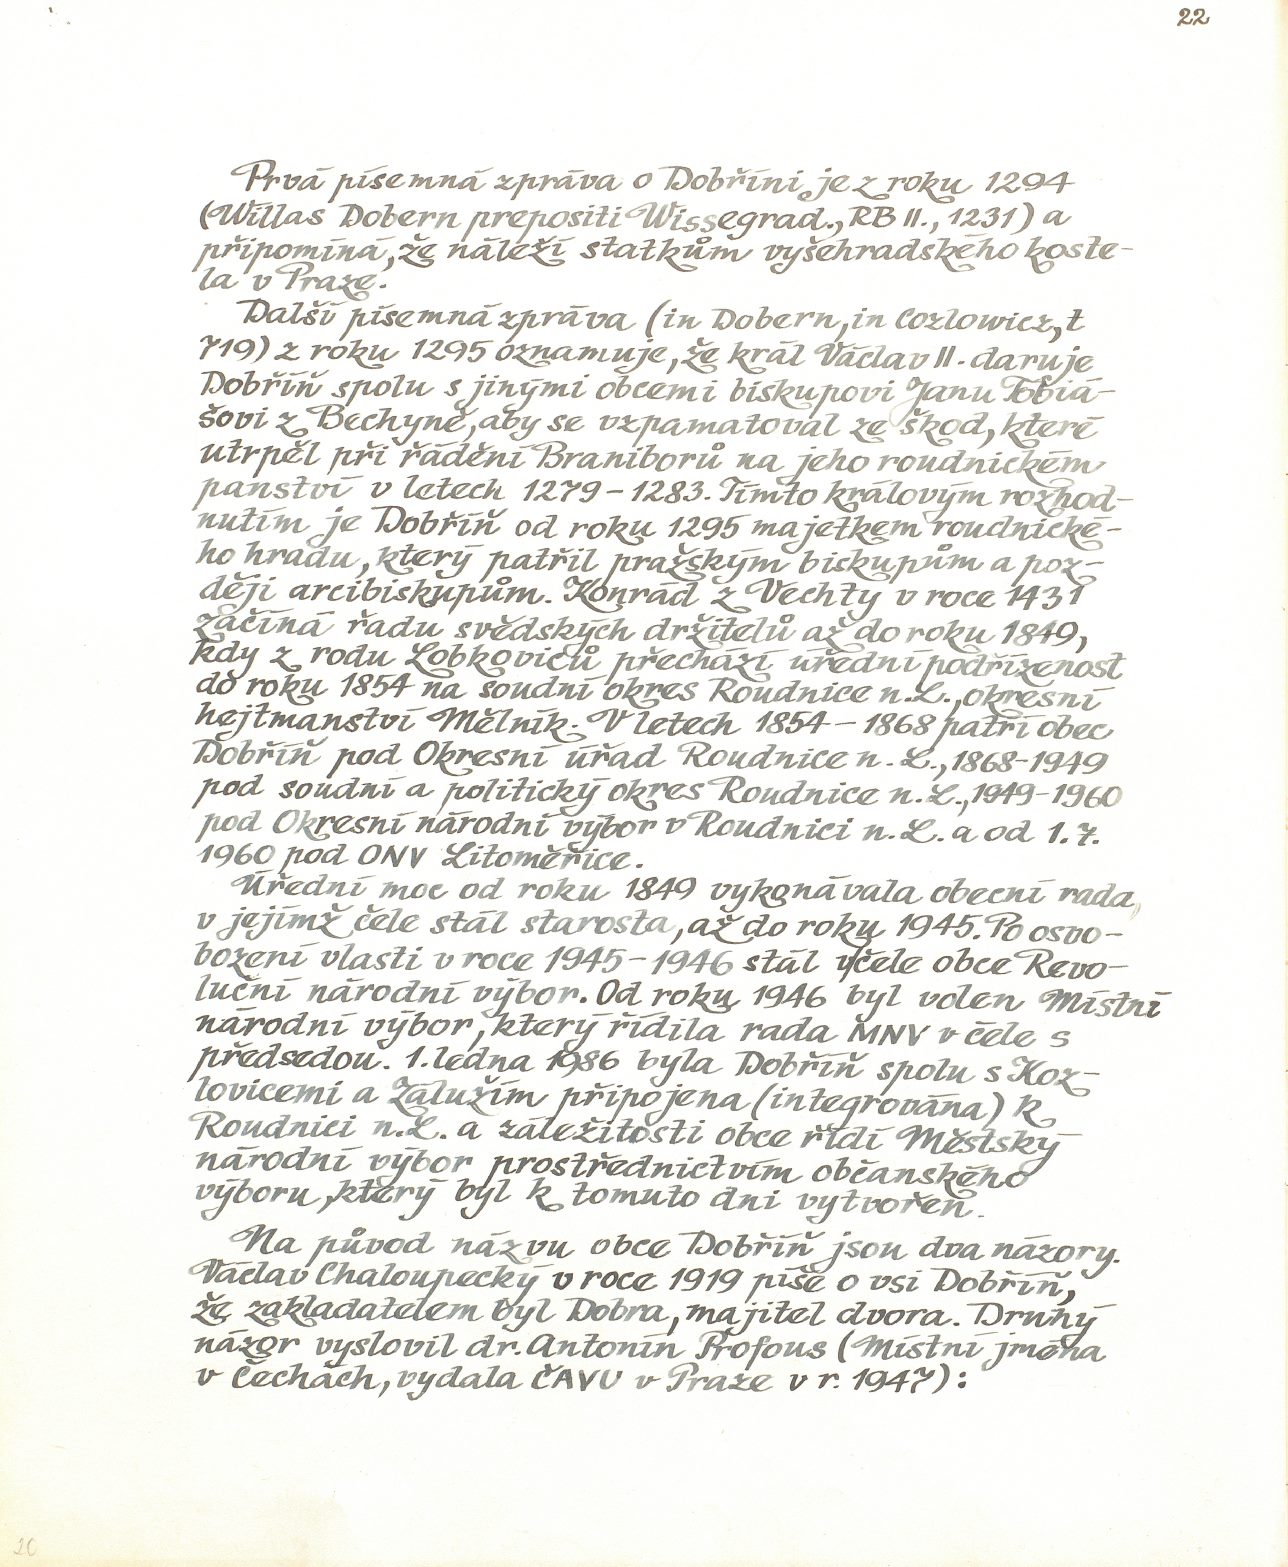 22
Prvá písemná zpráva o Dobříni je z roku 1294
(Willas Dobern prepositi Wissegrad., RB II., 1231) a
připomíná, že náleží statkům vyšehradského koste-
la v Praze.
Další písemná zpráva (in Dobern, in Cozlowicz, t
719) z roku 1295 oznamuje, že král Václav II. daruje
Dobříň spolu s jinými obcemi biskupovi Janu Tobiá-
šovi z Bechyně, aby se vzpamatoval ze škod, které
utrpěl při řádění Braniborů na jeho roudnickém
panství v letech 1279-1283. Tímto královým rozhod-
nutím je Dobříň od roku 1295 majetkem roudnické-
ho hradu, který patřil pražským biskupům a poz-
ději arcibiskupům. Konrád z Vechty v roce 1431
začíná řadu svědských držitelů až do roku 1849,
kdy z rodu Lobkoviců přechází úřední podřízenost
do roku 1854 na soudní okres Roudnice n.L., okresní
hejtmanství Mělník. V letech 1854-1868 patří obec
Dobříň pod Okresní úřad Roudnice n.L., 1868-1949
pod soudní a politický okres Roudnice n.L., 1949-1960
pod Okresní národní výbor v Roudnici n.L. a od 1.7.
1960 pod ONV Litoměřice.
Úřední moc od roku 1849 vykonávala obecní rada,
v jejímž čele stál starosta, až do roku 1945. Po osvo-
bození vlasti v roce 1945-1946 stál v čele obce Revo-
luční národní výbor. Od roku 1946 byl volen Místní
národní výbor, který řídila rada MNV v čele s
předsedou. 1. ledna 1986 byla Dobříň spolu s Koz-
lovicemi a Zálužím připojena (integrována) k
Roudnici n.L. a záležitosti obce řídí Městský
národní výbor prostřednictvím občanského
výboru, který byl k tomuto dni vytvořen.
Na původ názvu obce Dobříň jsou dva názory.
Václav Chaloupecký v roce 1919 píše o vsi Dobříň,
že zakladatelem byl Dobra, majitel dvora. Druhý
názor vyslovil dr. Antonín Profous (Místní jména
v Čechách, vydala ČAVU v Praze v r. 1947):
20